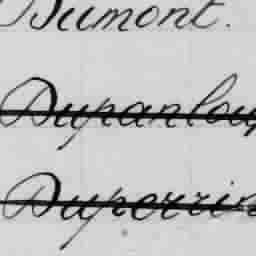 Dumont.
Dupanlou
Duperrin